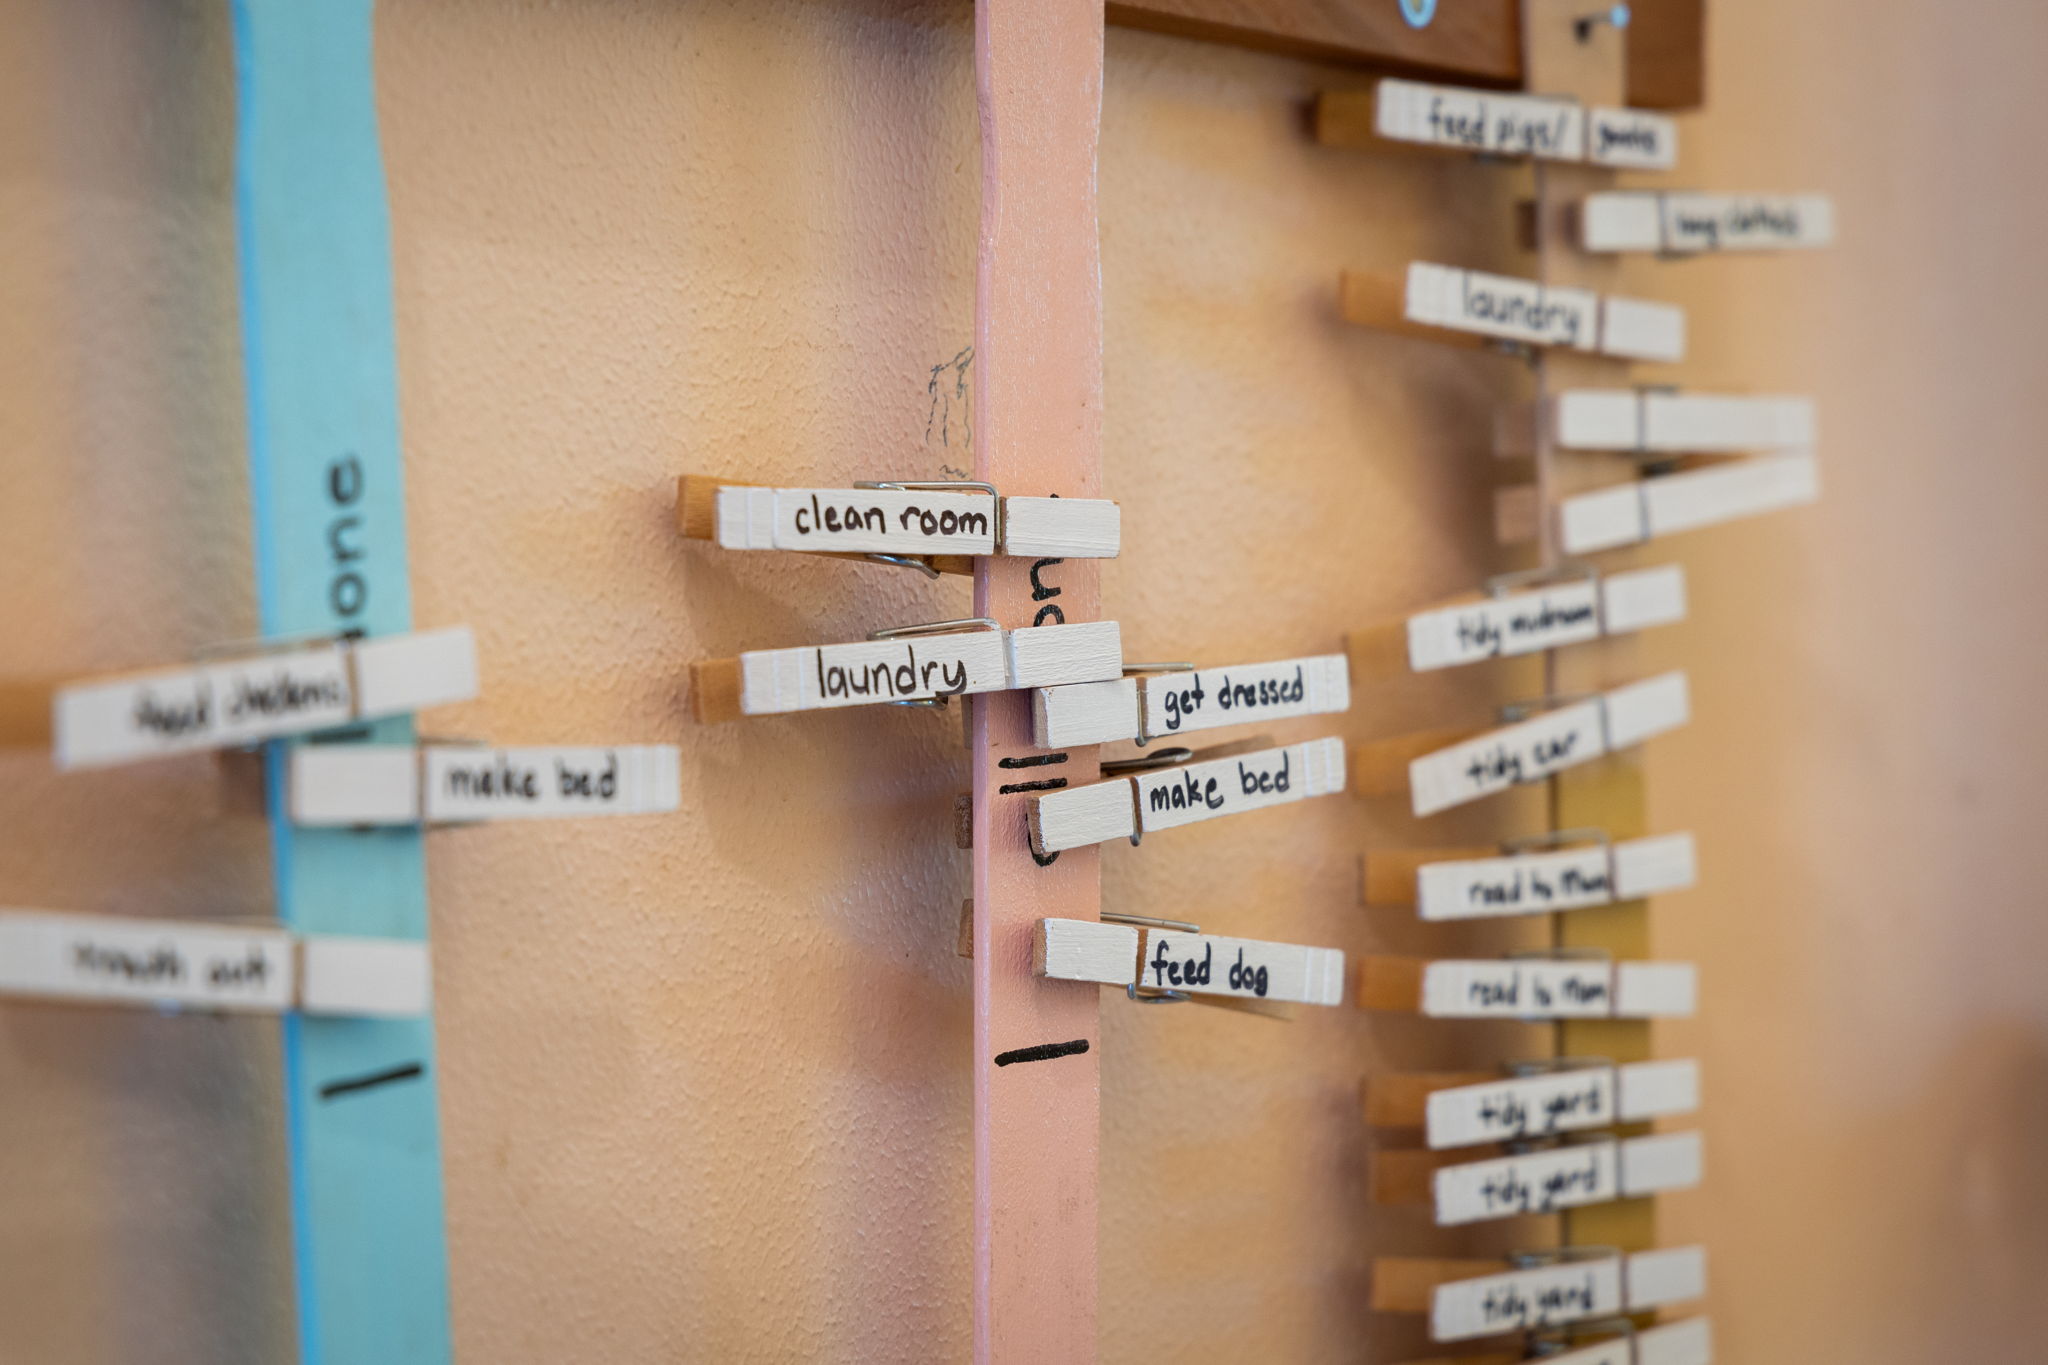 one
feed chickens
make bed
clean room
laundry
get dressed
make bed
feed dog
feed pigs/ goats
laundry
tidy mudroom
tidy car
read to Mom
read to Mom
tidy yard
tidy yard
tidy yard